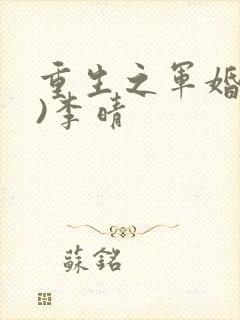 重生之軍婚
)李晴
蘇銘